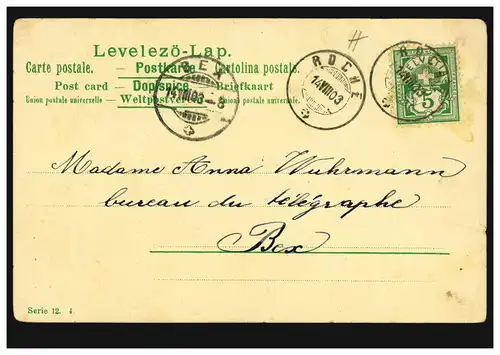 Levelezö-Lap.
Carte postale. — Postkarte — Cartolina postale.
Post card — Dopisnice — Briefkaart
Union postale universelle — Weltpostverein — Union postale universelle.
BEX
14.VIII.03.-8
ROCHE
14.VIII.03
HELVETIA
5
Madame Anna Wuhrmann
bureau du télégraphe
Bex
Serie 12. 4